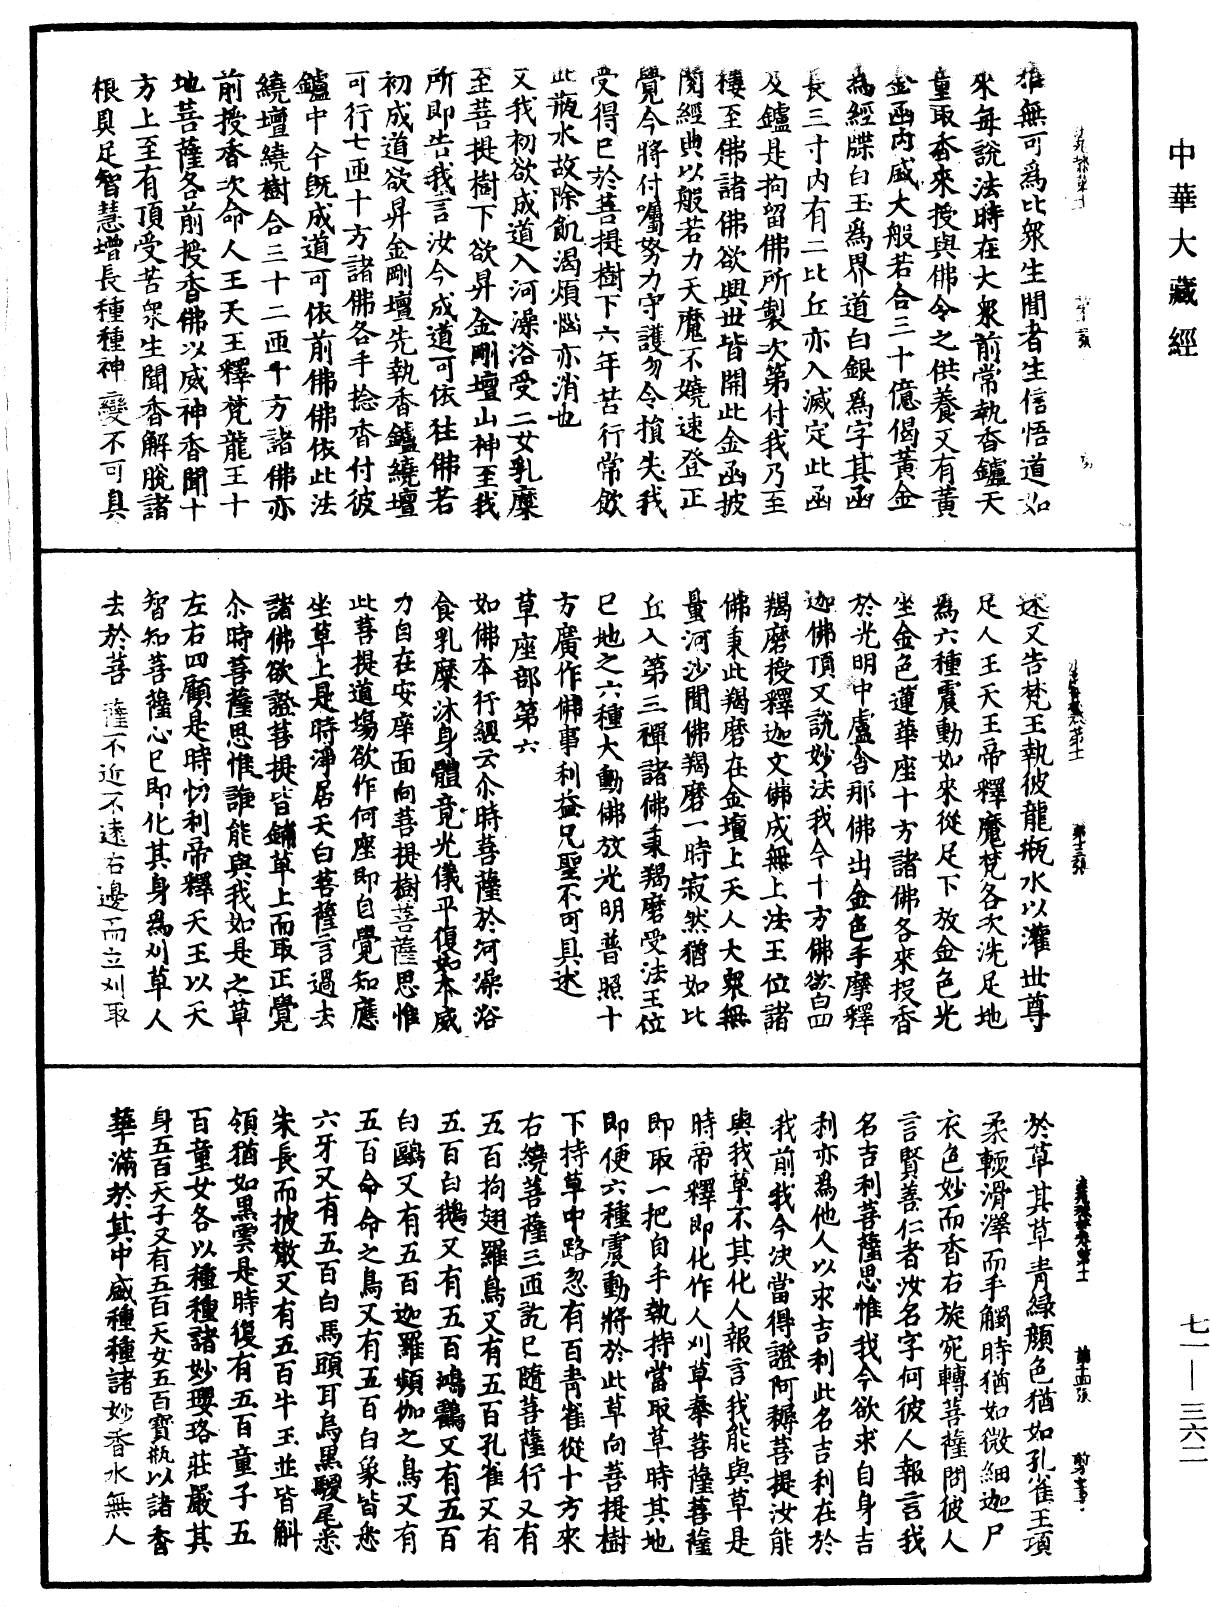 中華大藏經
七一—三六二
雅無可爲比眾生聞者生信悟道如
來每說法時在大眾前常執香鑪天
童取香來授與佛令之供養又有黃
金函內盛大般若合三十億偈黃金
為經牒白玉爲界道白銀爲字其函
長三寸內有二比丘亦入滅定此函
及鑪是拘留佛所製次第付我乃至
樓至佛諸佛欲興世皆開此金函披
閱經典以般若力天魔不嬈速登正
覺今將付囑努力守護勿令損失我
受得已於菩提樹下六年苦行常飲
此瓶水故除飢渴煩惱亦消也
又我初欲成道入河澡浴受二女乳糜
至菩提樹下欲昇金剛壇山神至我
所即告我言汝今成道可依往佛若
初成道欲昇金剛壇先執香鑪繞壇
可行七匝十方諸佛各手捻香付彼
鑪中今既成道可依前佛佛依此法
繞壇繞樹合三十二匝十方諸佛亦
前授香次命人王天王釋梵龍王十
地菩薩各前授香佛以威神香聞十
方上至有頂受苦眾生聞香解脫諸
根具足智慧增長種種神變不可具
述又告梵王執彼龍瓶水以灌世尊
足人王天王帝釋魔梵各次洗足地
為六種震動如來從足下放金色光
坐金色蓮華座十方諸佛各來授香
於光明中盧舍那佛出金色手摩釋
迦佛頂又說妙法我今十方佛欲白四
羯磨授釋迦文佛成無上法王位諸
佛秉此羯磨在金壇上天人大眾無
量河沙聞佛羯磨一時寂然猶如比
丘入第三禪諸佛秉羯磨受法王位
已地之六種大動佛放光明普照十
方廣作佛事利益凡聖不可具述
草座部第六
如佛本行經云尒時菩薩於河澡浴
食乳糜沐身體竟光儀平復如本威
力自在安庠面向菩提樹菩薩思惟
此菩提道場欲作何座即自覺知應
坐草上是時淨居天白菩薩言過去
諸佛欲證菩提皆鋪草上而取正覺
尒時菩薩思惟誰能與我如是之草
左右四顧是時忉利帝釋天王以天
智知菩薩心已即化其身爲刈草人
去於菩薩不近不遠右邊而立刈取
於草其草青綠顏色猶如孔雀王項
柔輭滑澤而手觸時猶如微細迦尸
衣色妙而香右旋宛轉菩薩問彼人
言賢善仁者汝名字何彼人報言我
名吉利菩薩思惟我今欲求自身吉
利亦爲他人以求吉利此名吉利在於
我前我今決當得證阿耨菩提汝能
與我草不其化人報言我能與草是
時帝釋即化作人刈草奉菩薩菩薩
即取一把自手執持當取草時其地
即便六種震動將於此草向菩提樹
下持草中路忽有百青雀從十方來
右繞菩薩三匝訖已隨菩薩行又有
五百拘翅羅鳥又有五百孔雀又有
五百白鵝又有五百鴻鸛又有五百
白鷗又有五百迦羅頻伽之鳥又有
五百命命之鳥又有五百白象皆悉
六牙又有五百白馬頭耳烏黑騣尾悉
朱長而披散又有五百牛王並皆斛
領猶如黑雲是時復有五百童子五
百童女各以種種諸妙瓔珞莊嚴其
身五百天子又有五百天女五百寶瓶以諸香
華滿於其中盛種種諸妙香水無人